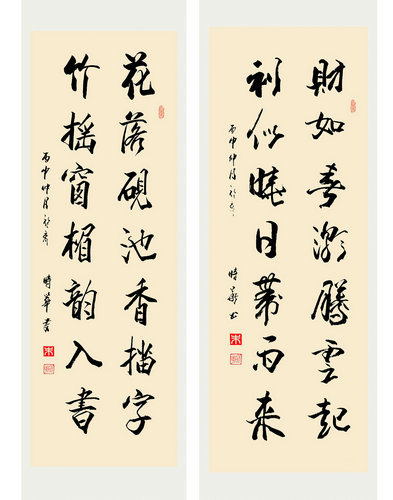 財如春潮騰雲起
利似曉日帶雨来
丙申仲月
時華書
花落硯池香描字
竹摇窗楣韻入書
丙申仲月
時華書